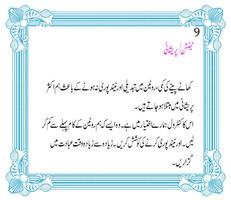 9
ٹینشن / پریشانی
کھانے پینے کی کمی، روٹین میں تبدیلی اور نیند پوری نہ ہونے کے باعث ہم اکثر
پریشانی میں مبتلا ہو جاتے ہیں۔
اس کا کنٹرول ہمارے اختیار میں ہے۔ وہ ایسے کہ ہم روٹین کے کام پہلے سے کم کر
لیں۔ اور نیند پوری کرنے کی کوشش کریں۔ زیادہ سے زیادہ وقت عبادت میں
گزاریں۔